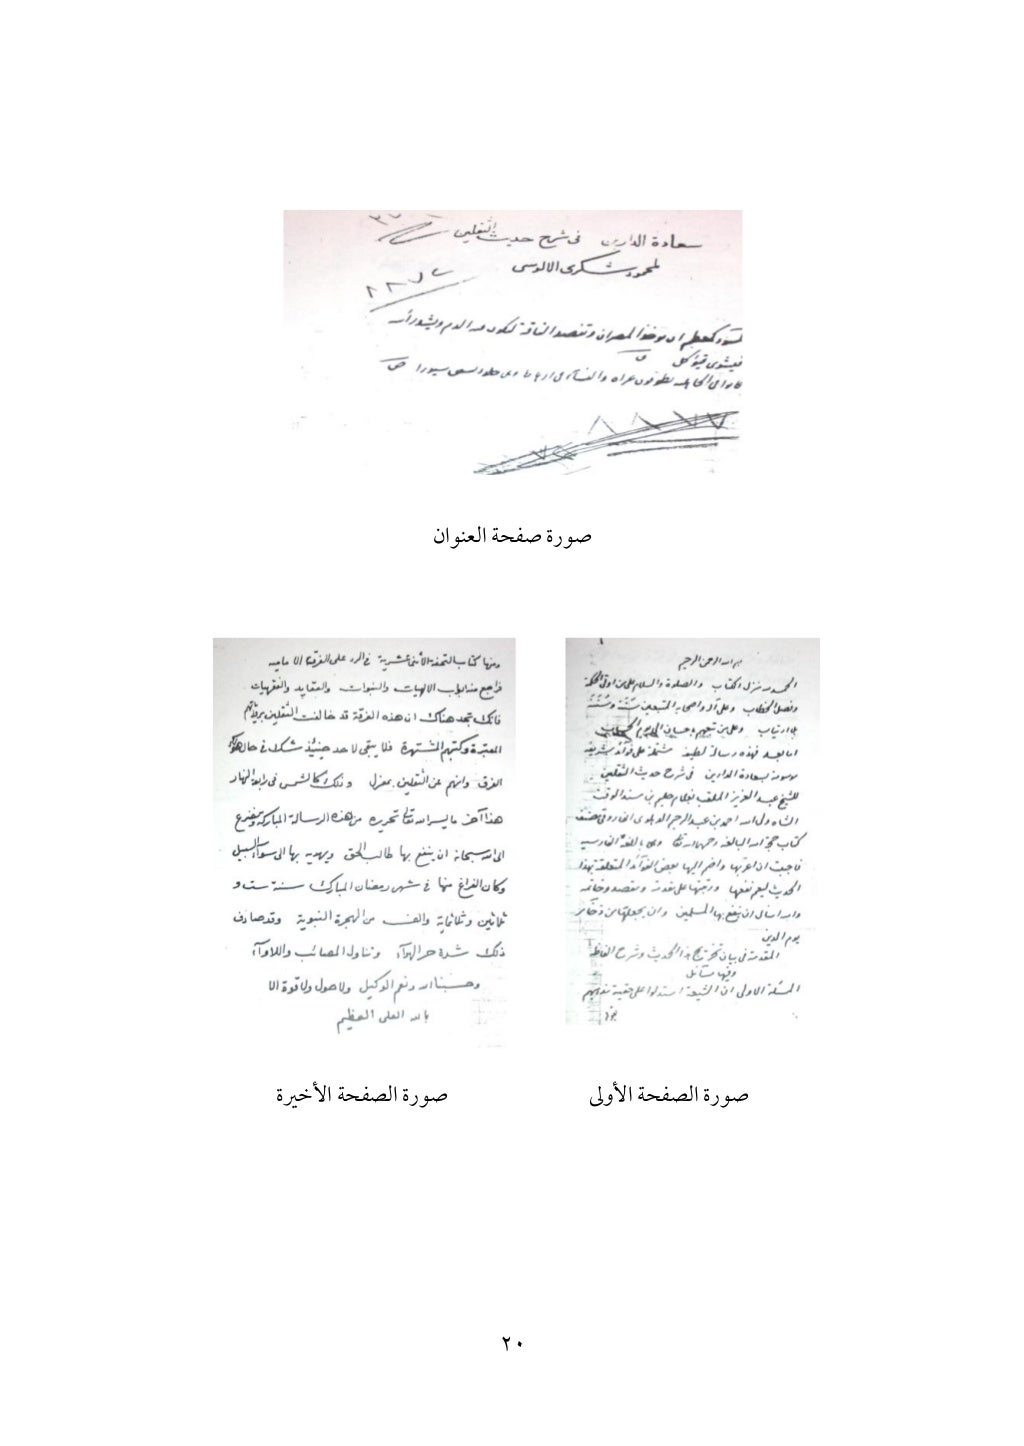 سعادة الدارين في شرح حديث الثقلين
لمحمود شكري الالوسي
٢٨٧٢
صورة صفحة العنوان
بسم الله الرحمن الرحيم
الحمد لله منزل الكتاب والصلاة والسلام على من اوتي الحكمة
وفصل الخطاب وعلى آله واصحابه المتبعين سنته وسننه
بلا ارتياب وعلى من تبعهم باحسان الى يوم الحساب
اما بعد فهذه رسالة لطيفة مشتملة على فوائد شريفة
موسومة بسعادة الدارين في شرح حديث الثقلين
للشيخ عبد العزيز الملقب بغلام حليم بن مسند الوقت
الشاه ولي الله احمد بن عبد الرحيم الدهلوي الفاروقي مصنف
كتاب حجة الله البالغة رحمهما الله تعالى وهي باللغة الفارسية
فاحببت ان اعربها واضم اليها بعض الفوائد المتعلقة بهذا
الحديث ليعم نفعها ورتبتها على مقدمة ومقصد وخاتمة
والله اسأل ان ينفع بها المسلمين وان يجعلها من ذخائر
يوم الدين
المقدمة في بيان تخريج هذا الحديث وشرح الفاظه
وفيها مسائل
المسئلة الاولى ان الشيعة استدلوا على حقية مذهبهم
صورة الصفحة الأولى
ومنها كتاب التحفة الأثنى عشرية في الرد على الفرقة الامامية
فراجع منه ابواب الالهيات والنبوات والعقايد والفقهيات
فانك تجد هناك ان هذه الفرقة قد خالفت الثقلين برواياتهم
المعتبرة وكتبهم المشتهرة فلا يبقى لاحد حينئذ شك في حال هؤلاء
الفرق وانهم عن الثقلين بمعزل وذلك كالشمس في رابعة النهار
هذا آخر ما يسر الله تعالى تحريره من هذه الرسالة المباركة ونضرع
الى الله سبحانه ان ينفع بها طالب الحق ويهديه بها الى سواء السبيل
وكان الفراغ منها في شهر رمضان المبارك سنة ست و
ثلاثين وثلاثماية والف من الهجرة النبوية وقد صادف
ذلك شدة حر الهواء وتناول المصائب واللاواء
وحسبنا الله ونعم الوكيل ولا حول ولا قوة الا
بالله العلي العظيم
صورة الصفحة الأخيرة
٢٠